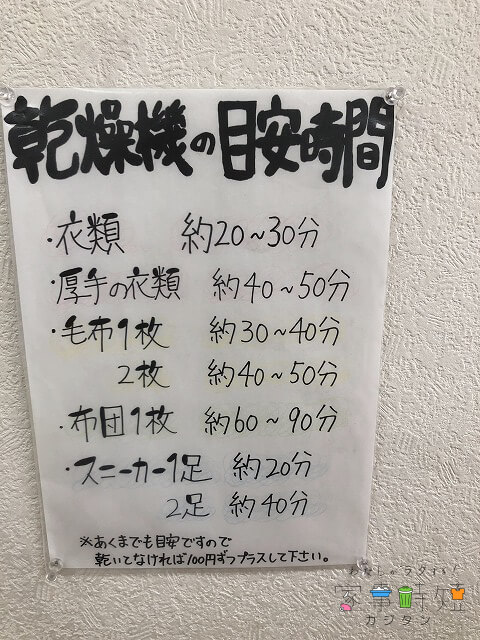 乾燥機の目安時間
・衣類 約20~30分
・厚手の衣類 約40~50分
・毛布1枚 約30~40分
2枚 約40~50分
・布団1枚 約60~90分
・スニーカー1足 約20分
2足 約40分
※あくまでも目安ですので
乾いてなければ100円ずつプラスして下さい。
家事時短
カジタン